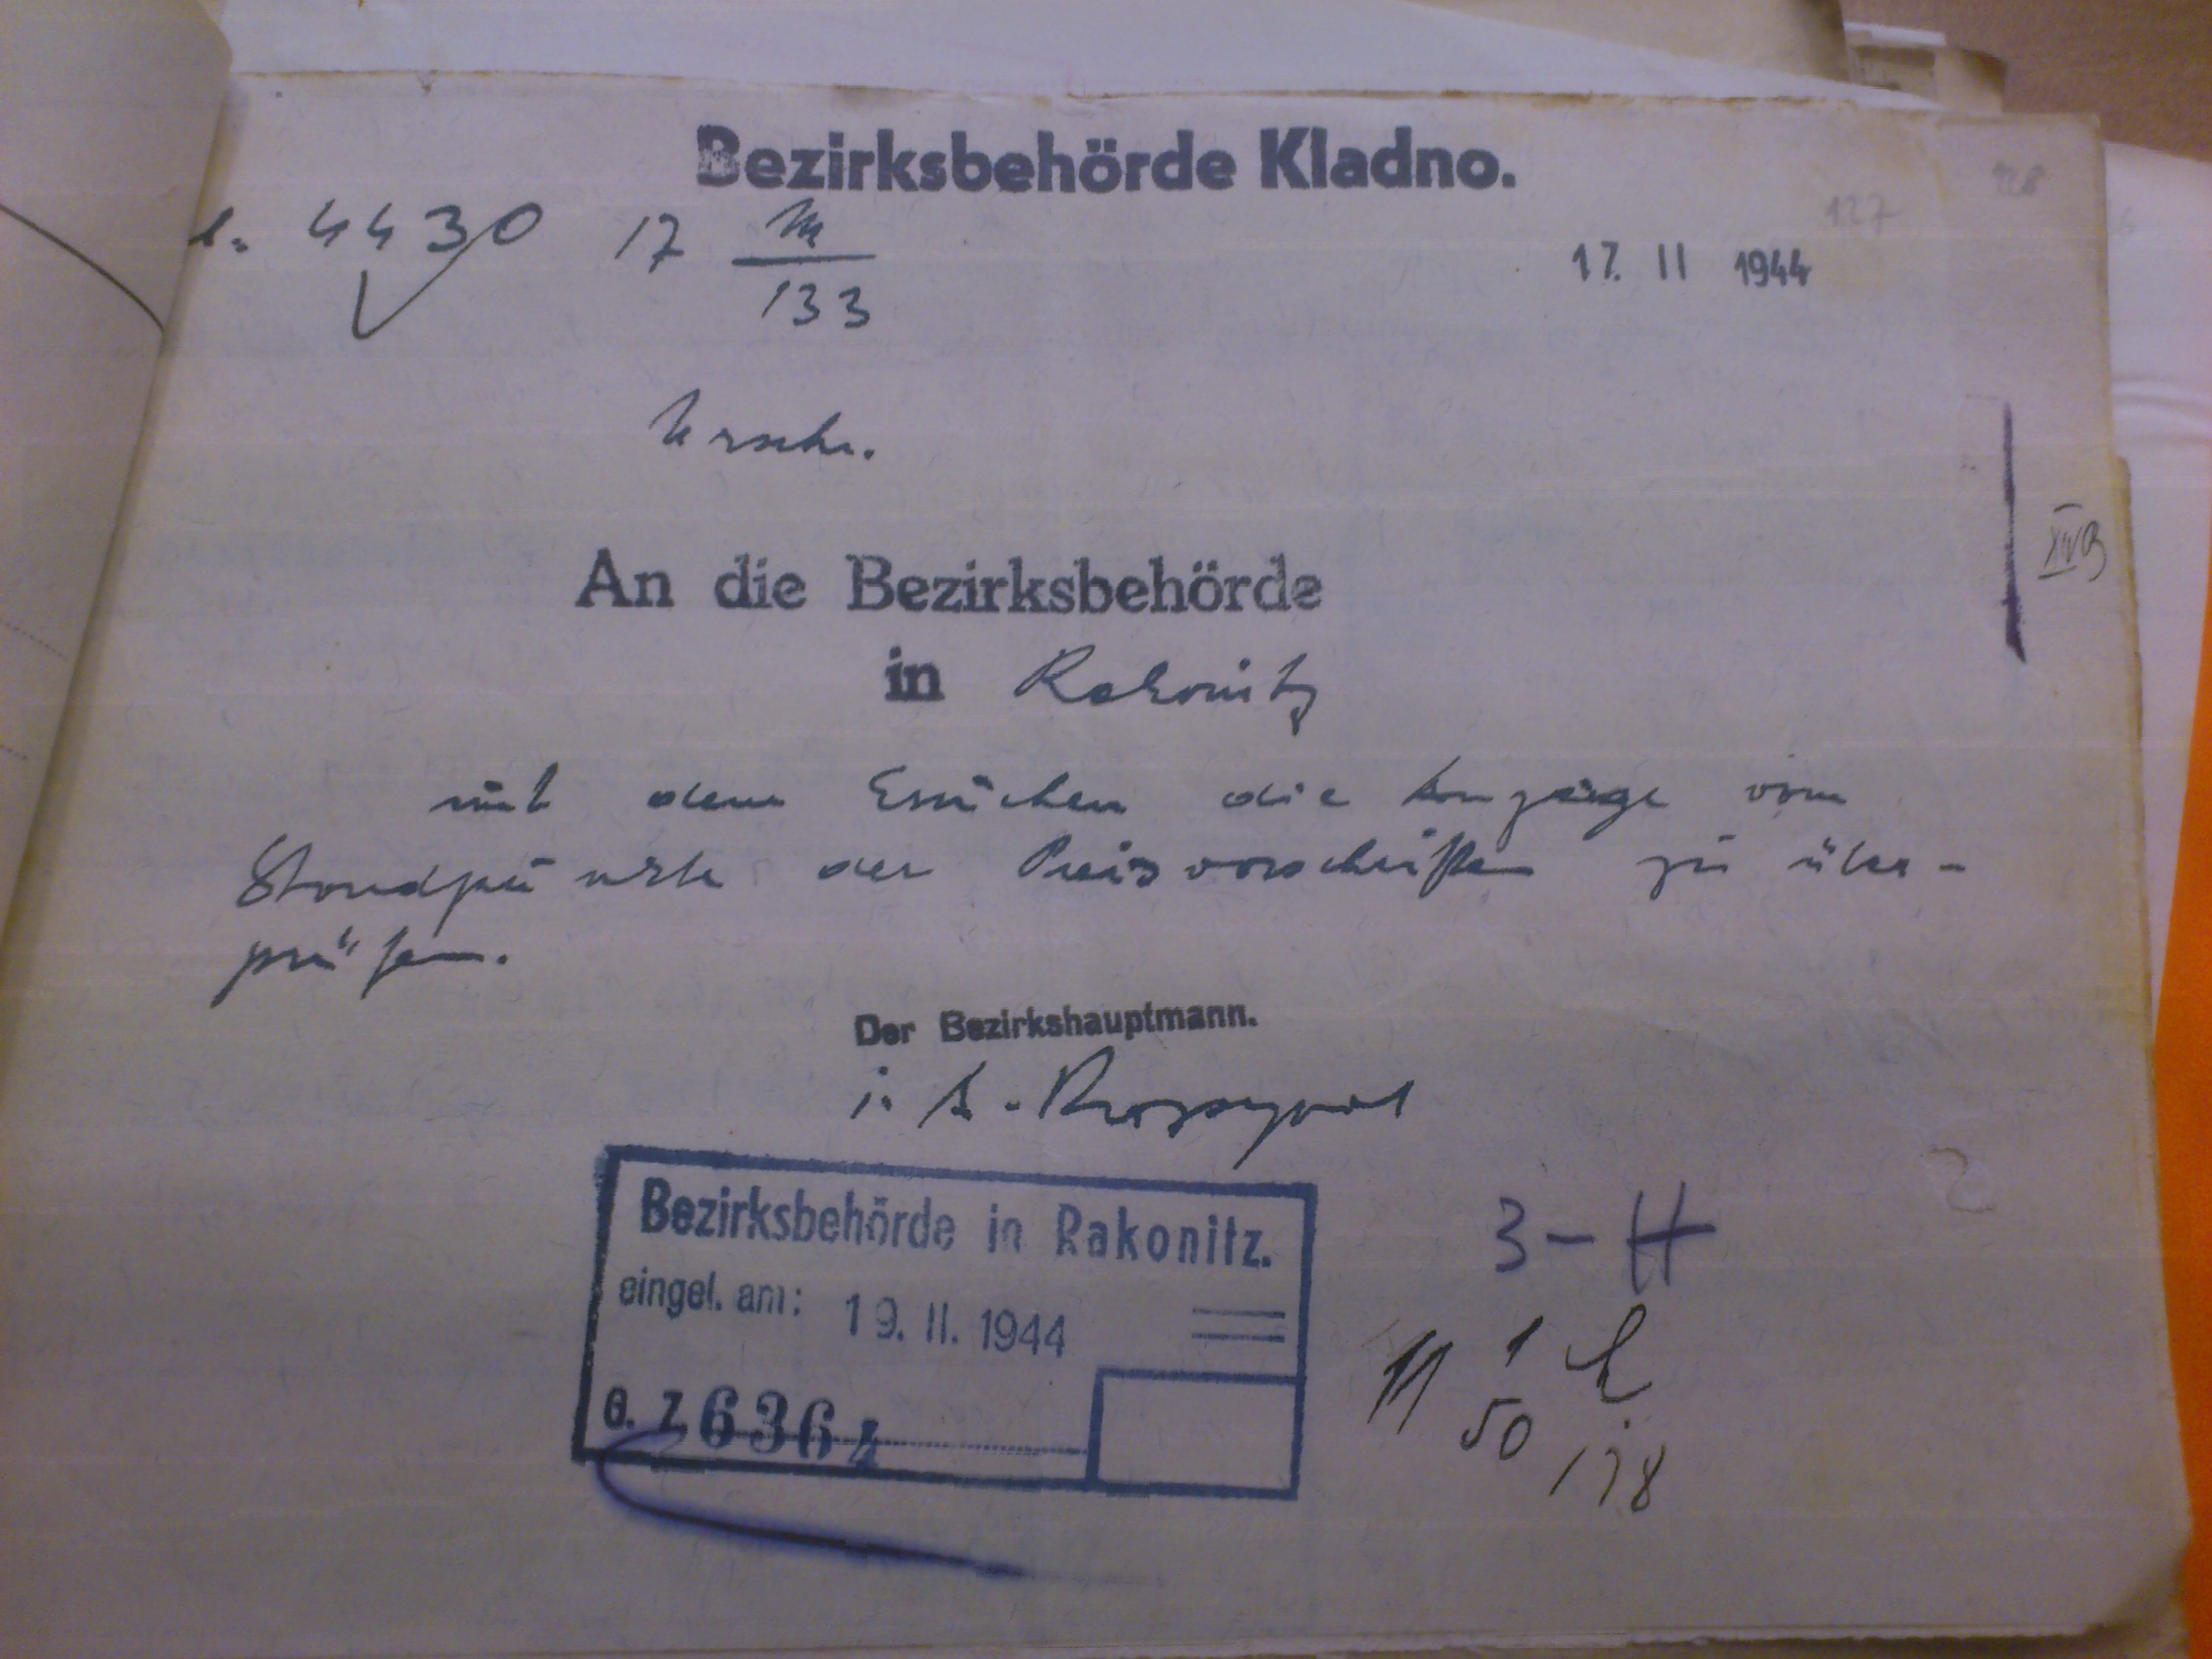 Bezirksbehörde Kladno.
128
127
4430 17 M/133
17. II 1944
Urschr.
An die Bezirksbehörde
in Rakonitz
mit dem Ersuchen die vom
Standpunkte der Preisvorschriften zu über-
prüfen.
Der Bezirkshauptmann.
i. A.
Bezirksbehörde in Rakonitz.
eingel. am: 19. II. 1944
G. Z. 6364
3-H
50